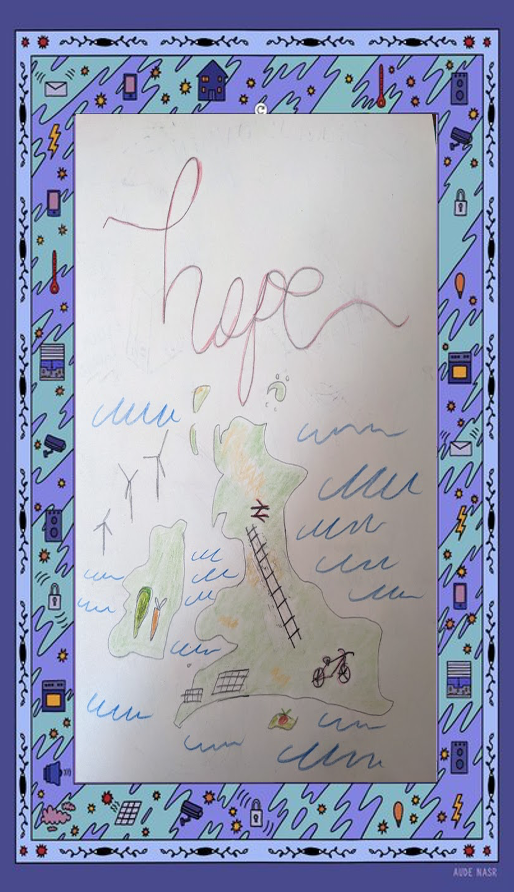 hope
AUDE NASR